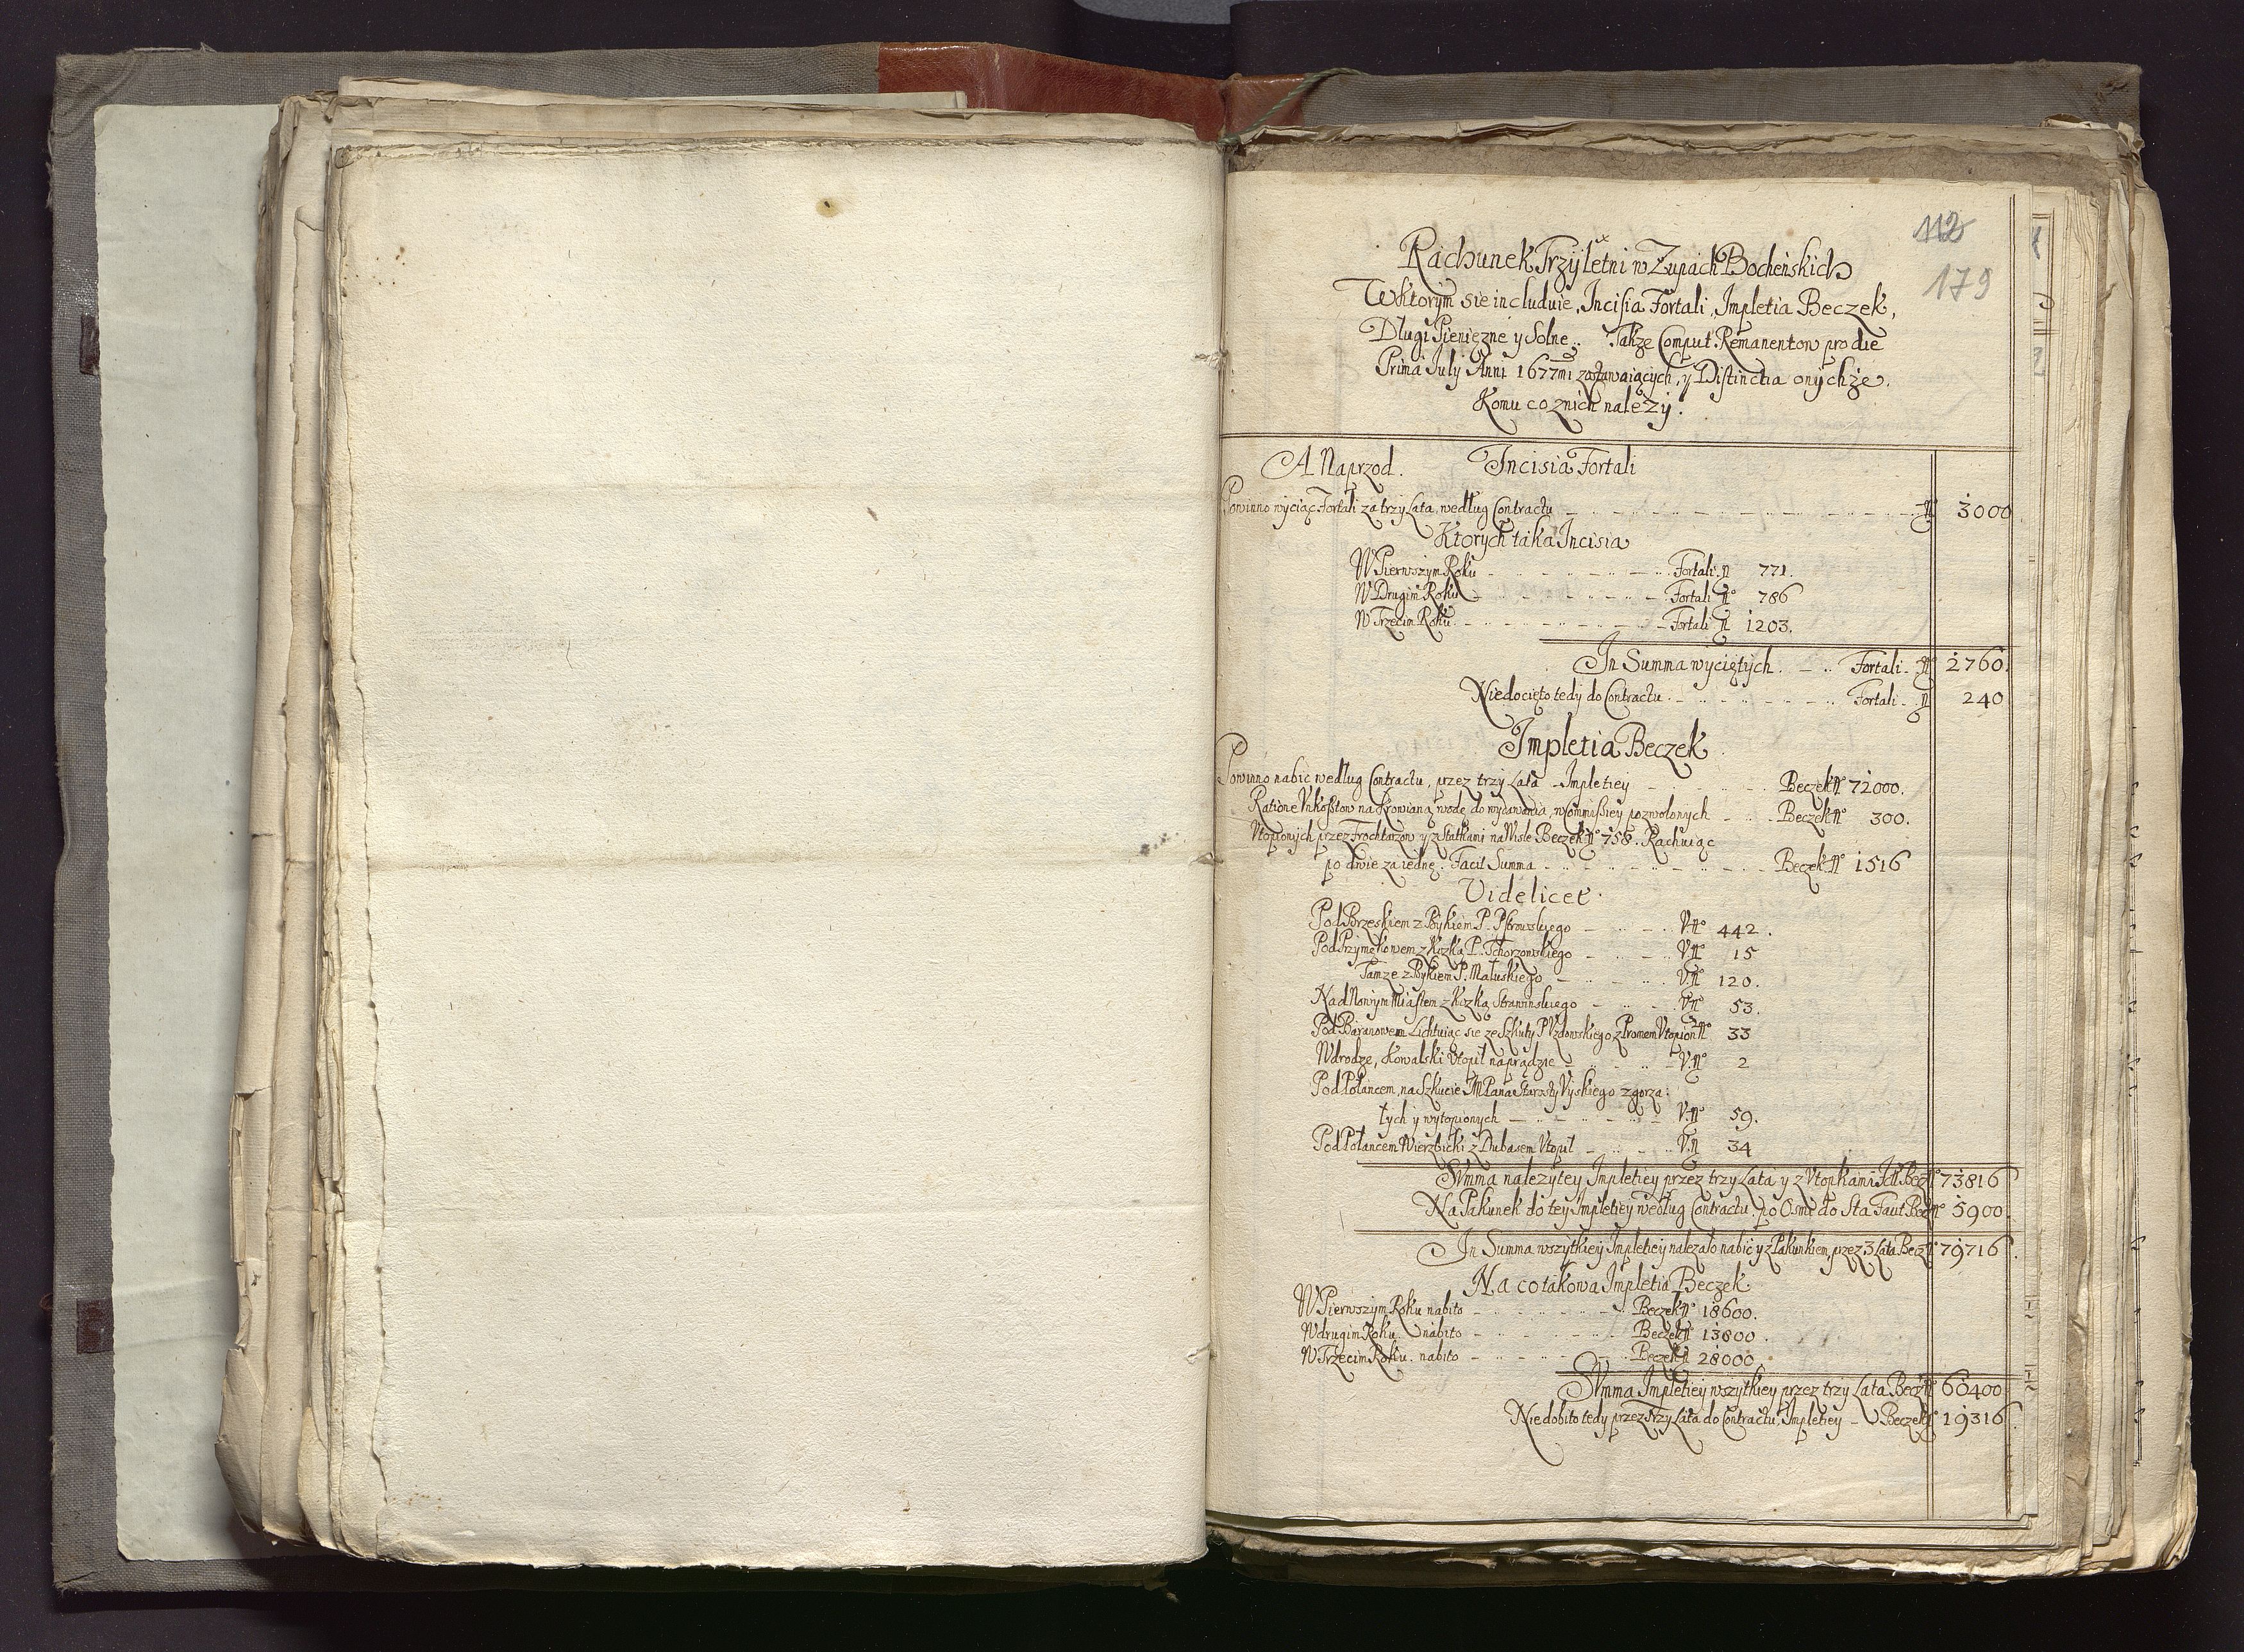 112
179
Rachunek Trzyletni w Zupach Bocheńskich
W ktorym sie includuie, Incisia Fortali, Impletia Beczek,
Dlugi Pienięzne y Solne. Takze Comput Remanentow pro die
Prima July Anni 1677mi zostawaiących, y Distinctia onychże.
Komu co znich nalezy.
A Naprzod. Incisia Fortali
Powinno wyciąc Fortali za trzy Lata, według Contractu No 3000
Ktorych taka Incisia
W Pierwszym Roku Fortali No 771.
W Drugim Roku Fortali No 786
W Trzecim Roku Fortali No 1203.
In Summa wyciętych Fortali No 2760.
Niedocięto tedy do Contractu Fortali No 240
Impletia Beczek
Powinno nabic według Contractu, przez trzy Lata Impletiey Beczek No 72000.
Ratione Vnkosztow na Skrowianą wodę do wydawania, w Commissiey pozwolonych Beczek No 300.
Vtopionych przez Frochtarzow y z Statkami na Wisle Beczek No 758. Rachuiąc
po dwie za iednę. Facit Summa Beczek No 1516
Videlicet.
Pod Brzeskiem z Bykiem P. V. No 442.
Pod Przymękowem z Kozką P. Tchorzowskiego V. No 15
Tamze z Bykiem P. Matuskiego V. No 120.
Nad Nowym Miastem z Kozką Strawinskiego V. No 53.
Pod Baranowem Lichtuiąc sie ze Szkuty P. Vzdowskiego z Promem Vtopion No 33
W drodze, Kowalski Vtopił na prądzie V. No 2
Pod Połancem, na Szkucie JMPana Starosty Vyskiego zgorza:
łych y wytopionych V. No 59.
Pod Połancem Wierzbicki z Dubasem Vtopił V. No 34
Summa nalezytey Impletiey przez trzy Lata y z Vtopkami Becz No 73816
Na Pakunek do tey Impletiey według Contractu, po Osmi do Sta Faut Becz No 5900.
In Summa wszytkiey Impletiey nalezało nabic y z Pakunkiem, przez 3 Lata Becz No 79716.
Na co takowa Impletia Beczek
W Pierwszym Roku nabito Beczek No 18600.
W drugim Roku nabito Beczek No 13800.
W Trzecim Roku nabito Beczek No 28000.
Summa Impletiey wszytkiey przez trzy Lata Becz No 60400
Niedobito tedy przez trzy Lata do Contractu Impletiey Beczek No 19316.